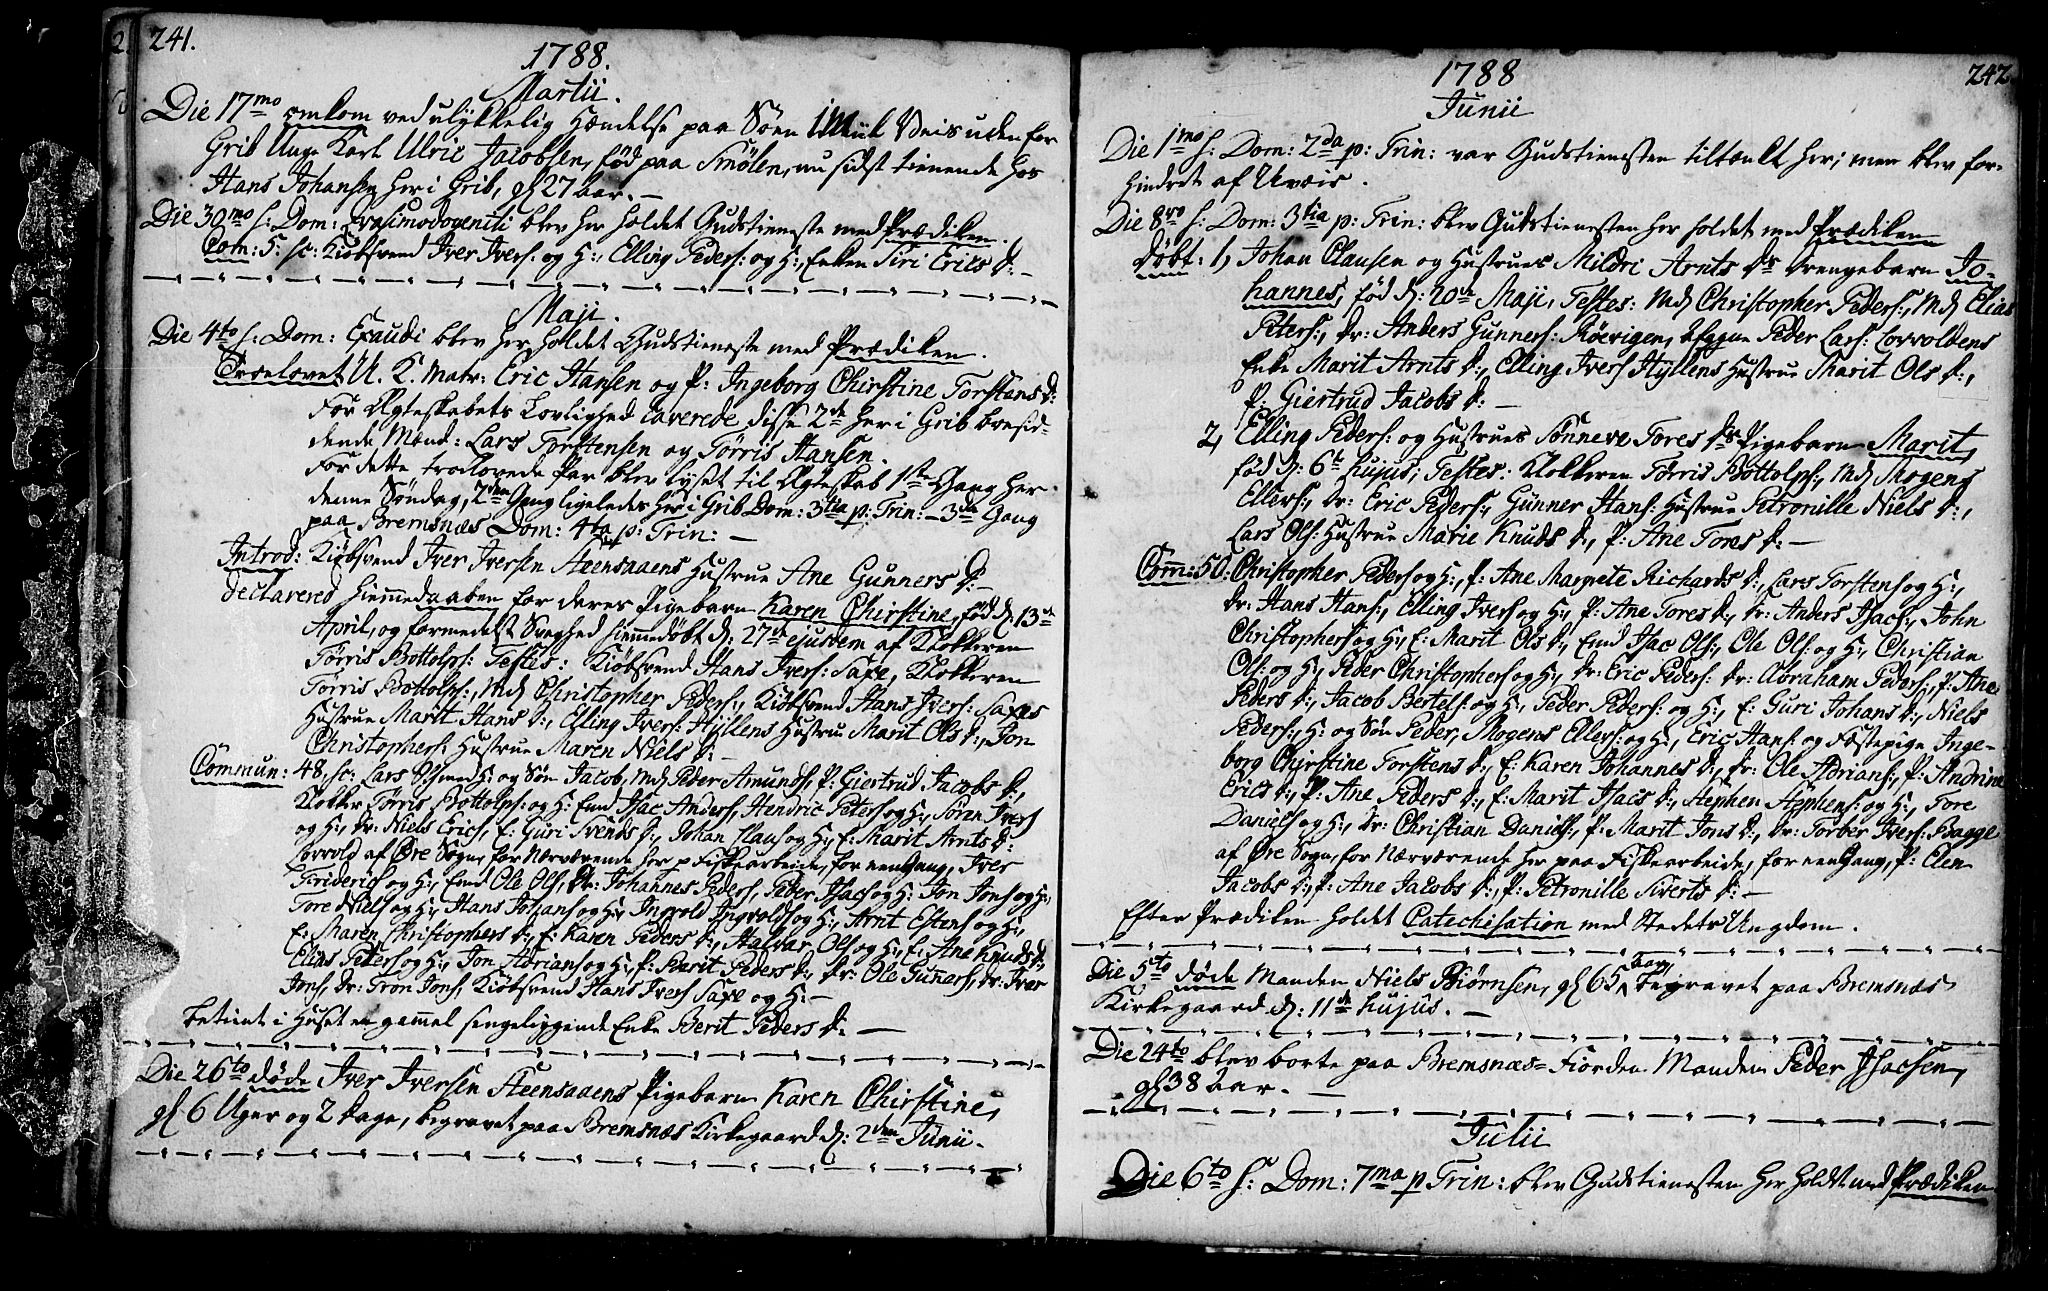 241.
1788.
Martii.
Die 17mo omkom ved ulykkelig Hændelse paa Søen uden for
Grib Unge Karl Ulric Jacobsen, fød paa Smølen, nu sidst tienende hos
Hans Johansen her i Grib, gl 27 Aar. —
Die 30mo s: Dom: Qvasimodogeniti blev her holdet Gudstieneste med Prædiken.
Com: 5. sc: Kiøbsvend Iver Ivers: og H:, Elling Peders: og H:, Enken Siri Erics D: —
Maji.
Die 4to s: Dom: Exaudi blev her holdet Gudstieneste med Prædiken.
Troelovet U. K. Matr: Eric Hansen og P: Ingeborg Chirstine Torstens D:
For Ægteskabets Lovlighed caverede disse 2de her i Grib boesid-
dende Mænd: Lars Torstensen og Tørris Hansen.
For dette troelovede Par blev lyset til Ægteskab 1ste Gang her
denne Søndag, 2den Gang ligeledes her i Grib Dom: 3tia p: Trin: — 3die Gang
paa Bremsnæs Dom: 4ta p: Trin: —
Introd: Kiøbsvend Iver Iversen Steensaaens Hustrue Ane Gunners D: —
declarered Hiemmedaaben for deres Pigebarn Karen Chirstine, fød d: 13de
April, og formedelst Svaghed hiemmedøbt d: 27de ejusdem af Klokkeren
Tørris Bottolps: Testes: Kiøbsvend Hans Ivers: Saxe, Klokkeren
Tørris Bottolps:, Md Christopher Peders:, Kiøbsvend Hans Ivers: Saxes
Hustrue Marit Hans D:, Elling Ivers: Hyllens Hustrue Marit Ols D:, Jon
Christophers: Hustrue Maren Niels D: —
Commun: 48, sc: Lars Ols med H: og Søn Jacob, Md Peder Amunds, P: Giertrud Jacobs D:,
Klokker Tørris Bottolps: og H: Emd Isac Anders, Hendric Peters og H:, Søren Ivers
og H:, Dr: Niels Erics, E: Guri Svends D:, Johan Claus og H:, E: Marit Arnts D:
Lorvold af Øre Sogn, for Nærværende her p Fiskearbeide, for een Gang, Iver
Friderics og H:, Emd Ole Ols, Dr: Johannes Peders, Peder Isacs og H: Jon Jons og H:,
Tore Niels og H:, Hans Johans og H:, Ingvold Ingvolds og H:, Arnt Estens og H:,
E: Maren Christophers D:, E: Karen Peders D:, Halvar Ols og H:, E: Ane Knuds D:,
Elias Peters og H:, Jon Adrians og H:, P: Berit Peders D:, Dr: Ole Gunners, Dr: Iver
Jons, Dr: Tron Jons, Kiøbsvend Hans Ivers Saxe og H: —
betient i Huset en gammel sengeliggende Enke Berit Peders D: —
Die 26to døde Iver Iversen Steensaaens Pigebarn Karen Chirstine,
gl 6 Uger og 2 Dage, begravet paa Bremsnæs Kirkegaard d: 2den Junii.
242
1788
Junii
Die 1mo s: Dom: 2da p: Trin: var Gudstienesten tiltænkt her; men blev for-
hindret af Uveir.
Die 8vo s: Dom: 3tia p: Trin: blev Gudstienesten her holdet med Prædiken
Døbt: 1, Johan Clausen og Hustrues Mildri Arnts Ds Drengebarn Jo-
hannes, fød d: 20de Maji, Testes: Md Christopher Peders:, Md Elias
Peters:, Dr: Anders Gunners: Røevigen, Afgagne Peder Lars: Lorvoldens
Enke Marit Arnts D:, Elling Ivers Hyllens Hustrue Marit Ols D:,
P: Giertrud Jacobs D: —
2, Elling Peders: og Hustrues Sønneve Tores Ds Pigebarn Marit,
fød d: 6te hujus; Testes: Klokkeren Tørris Bottolps:, Md Mogens
Ellers:, Dr: Eric Peders:, Gunner Hans: Hustrue Petronille Niels D:,
Lars Ols: Hustrue Marie Knuds D:, P: Ane Tores D: —
Com: 50: Christopher Peders og H:, P: Ane Margrete Richards D:, Lars Torstens og H:,
Dr: Hans Hans:, Elling Ivers og H:, P: Ane Tores D:, Dr: Anders Isacs:, John
Christophers og H:, E: Marit Ols D:, Emd Isac Ols:, Ole Ols: og H:, Christian
Ols: og H:, Peder Christophers og H:, Dr: Eric Peders: Dr: Abraham Peders:, P: Ane
Peders D:, Jacob Bertels: og H:, Peder Peders: og H:, E: Guri Johans D:, Niels
Peders:, H: og Søn Peder, Mogens Ellers: og H:, Eric Hans: og Fæstepige Inge-
borg Chirstine Torstens D:, E: Karen Johannes D:, Dr: Ole Adrians:, P: Andrine
Erics D:, P: Ane Peders D:, E: Marit Isacs D:, Stephen Stephens: og H:, Tore
Daniels og H:, Dr: Christian Daniels:, P: Marit Jons D:, Dr: Torber Ivers: Bagge
af Øre Sogn, for Nærværende her paa Fiskearbeide, for een Gang, P: Elen
Jacobs D:, P: Ane Jacobs D:, P: Petronille Siverts D: —
Efter Prædiken holdet Catechisation med Stedets Ungdom.
Die 5to døde Manden Niels Biørnsen, gl 65 Aar, begravet paa Bremsnæs
Kirkegaard d: 11de hujus. —
Die 24to blev borte paa Bremsnæs-Fiorden Manden Peder Isacsen,
gl 38 Aar. —
Julii
Die 6to s: Dom: 7ma p Trin: blev Gudstienesten her holdt med Prædiken